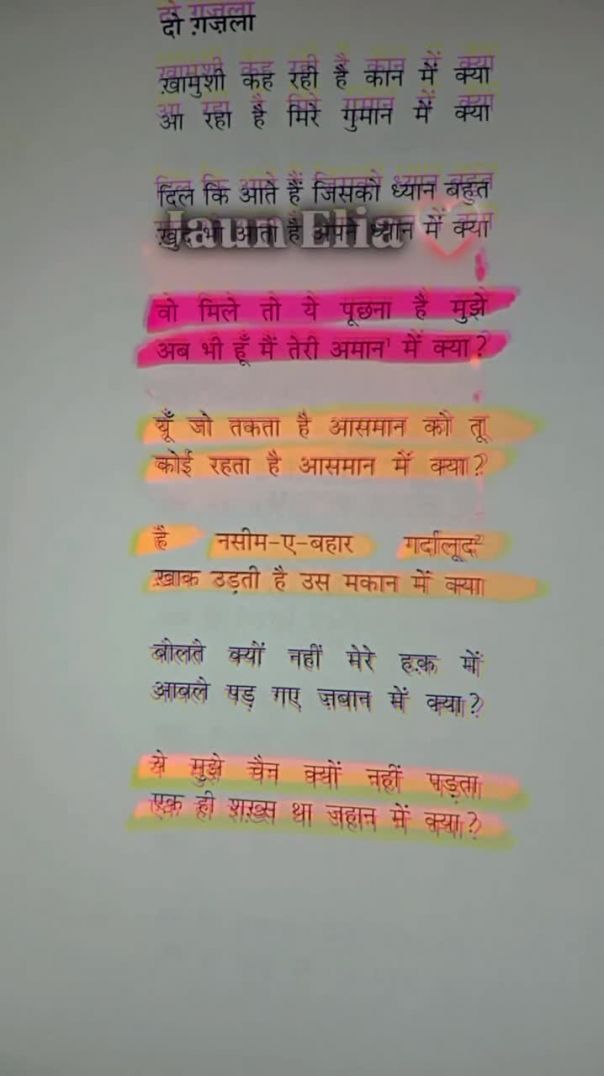 दो ग़ज़ला
ख़ामुशी कह रही है कान में क्या
आ रहा है मिरे गुमान में क्या
दिल कि आते हैं जिसको ध्यान बहुत
Jaun Elia
ख़ुद भी आता है अपने ध्यान में क्या
वो मिले तो ये पूछना है मुझे
अब भी हूँ मैं तेरी अमान¹ में क्या?
यूँ जो तकता है आसमान को तू
कोई रहता है आसमान में क्या?
है नसीम-ए-बहार गर्दालूद²
ख़ाक उड़ती है उस मकान में क्या
बोलते क्यों नहीं मेरे हक़ में
आबले पड़ गए ज़बान में क्या?
ये मुझे चैन क्यों नहीं पड़ता
एक ही शख़्स था जहान में क्या?